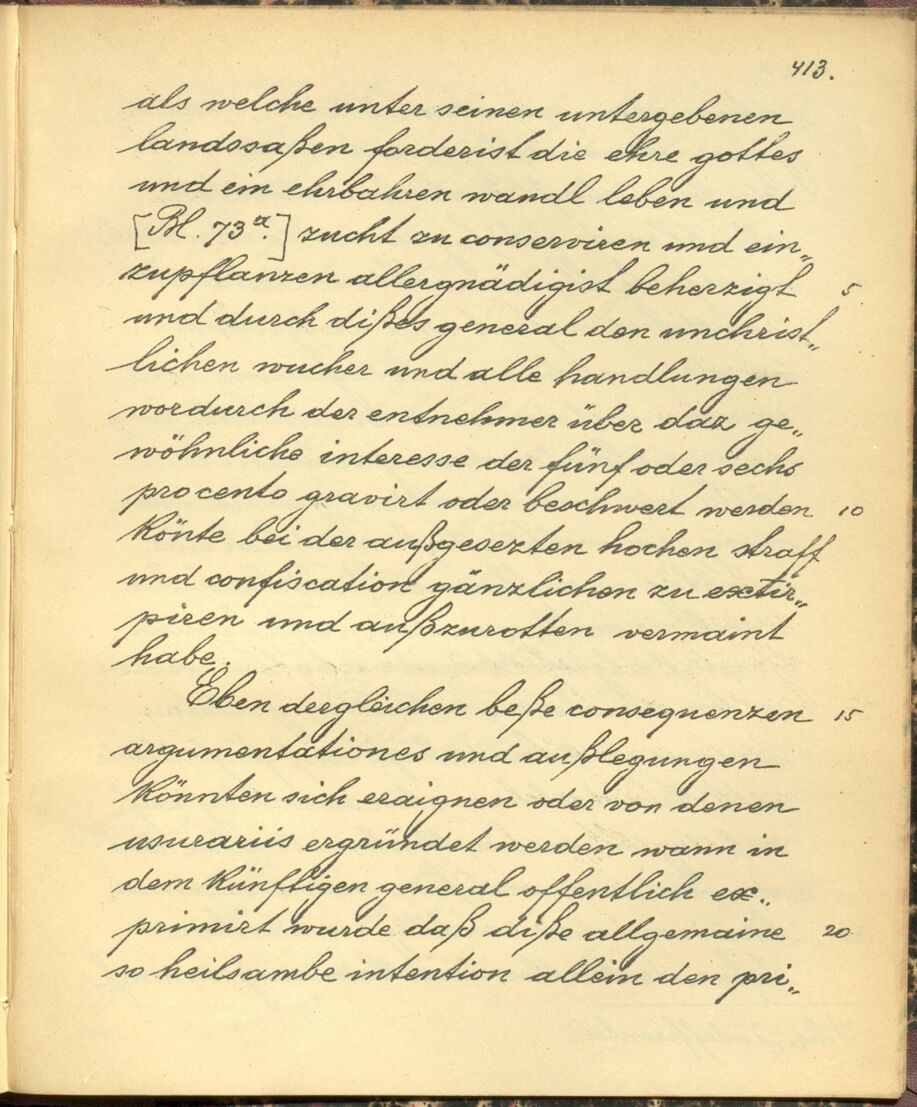 413.
als welche unter seinen untergebenen
landssaßen forderist die ehre gottes
und ein ehrbahren wandl leben und
[Bl. 73a.] zucht zu conserviren und ein„
zupflanzen allergnädigist beherzigt 5
und durch dißes general den unchrist„
lichen wucher und alle handlungen
wordurch der entnehmer über daz ge„
wöhnliche interesse der fünf oder sechs
procento gravirt oder beschwert werden 10
könte bei der außgesezten hochen straff
und confiscation gänzlichen zu extir„
piren und außzurotten vermaint
habe.
Eben dergleichen beße consequenzen 15
argumentationes und außlegungen
könnten sich eraignen oder von denen
usurariis ergründet werden wann in
dem künftigen general offentlich ex„
primirt wurde daß diße allgemaine 20
so heilsambe intention allein den pri„